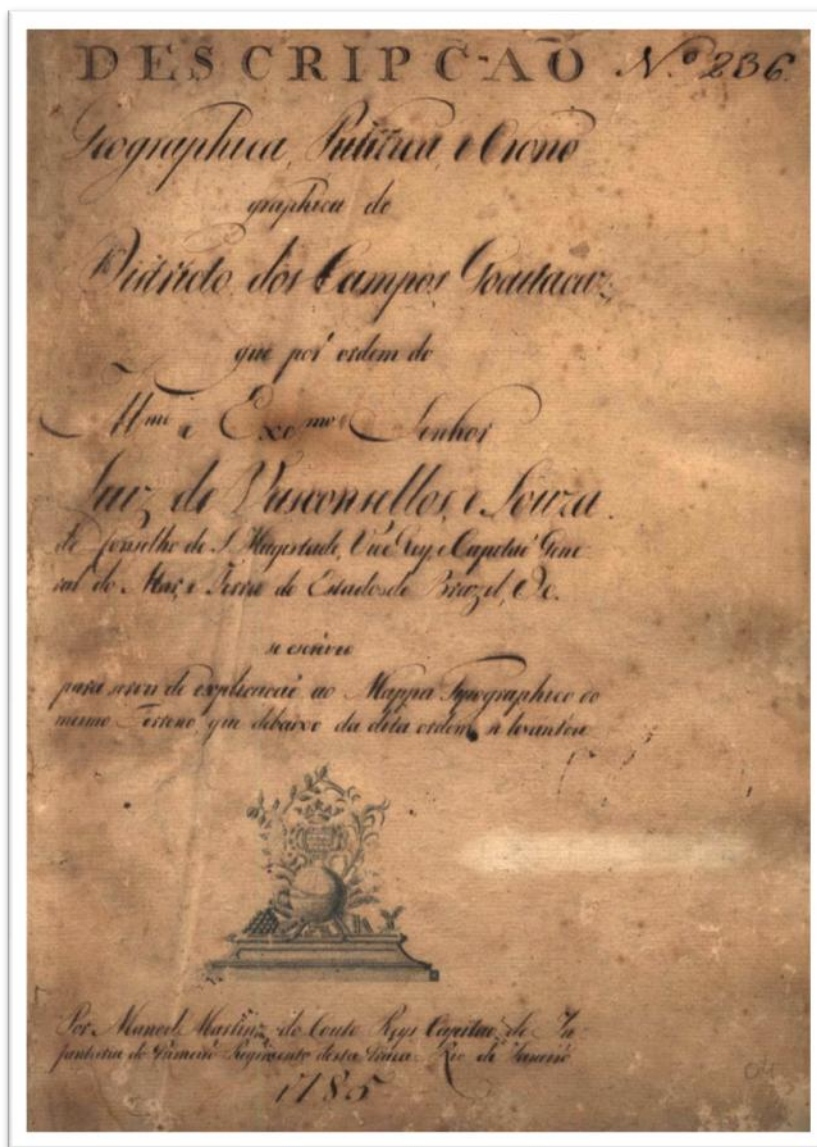 DESCRIPÇAÕ N.º 236.
Geographica, Pulitica, e Crono
graphica do
Districto dos Campos Goaitacaz;
que por ordem do
Illmo e Exo.mo Senhor
Luiz de Vasconsellos, e Souza.
do Conselho de S. Magestade, Vice Rey, e Capitaõ Gene-
ral do Mar, e Terra do Estado do Brazil, &c.
se escreveo
para servir de explicacaõ ao Mappa Typographico do
mesmo Terreno, que debaixo da dita ordem se levantou
Por Manoel Martinz do Couto Reys Capitaõ de In
fantaria do Primeiro Regimento desta Praca Rio de Janeiro
1785
04